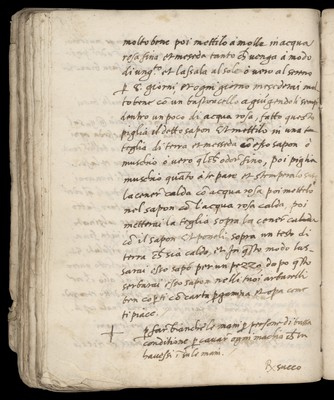 molto bene poi mettilo à mollo in acqua
rosa fina et meseda tanto ch̃ venga à modo
di ungto et lassala al sole ò vero al sereno
p 8 giorni, et ogni giorno mesederai mol
to bene cō un bastoncello agiūgendoli semp
dentro un poco di acqua rosa, fatto questo
piglia il detto sapon et mettilo in una
teglia di terra et meseda cō esso sapon ò
muschio ò vero odor fino, poi piglia
muschio quāto à te pare et stemperalo su
la cener calda cō acqua rosa poi mettelo
nel sapon cō l'acqua rosa calda poi
metterai la teglia sopra la cener calda
cō il sapon et ponela sopra un testo di
terra ch̃ sia caldo, et in qsto modo las
sarai esso sapō per un pezzo, dopo qsto
serbarai esso sapon nelli tuoi arbarelli
ben copti cō carta pgamena et opa come
ti piace.
+ p far bianche le mani p persone di bassa
conditione p cavar ogni machia ch̃
havessi in le mani.
℞ succo